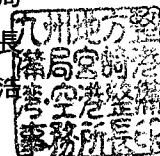 局
長
浩
九州地方整
備局宮崎港
湾・空港整備
事務所長印